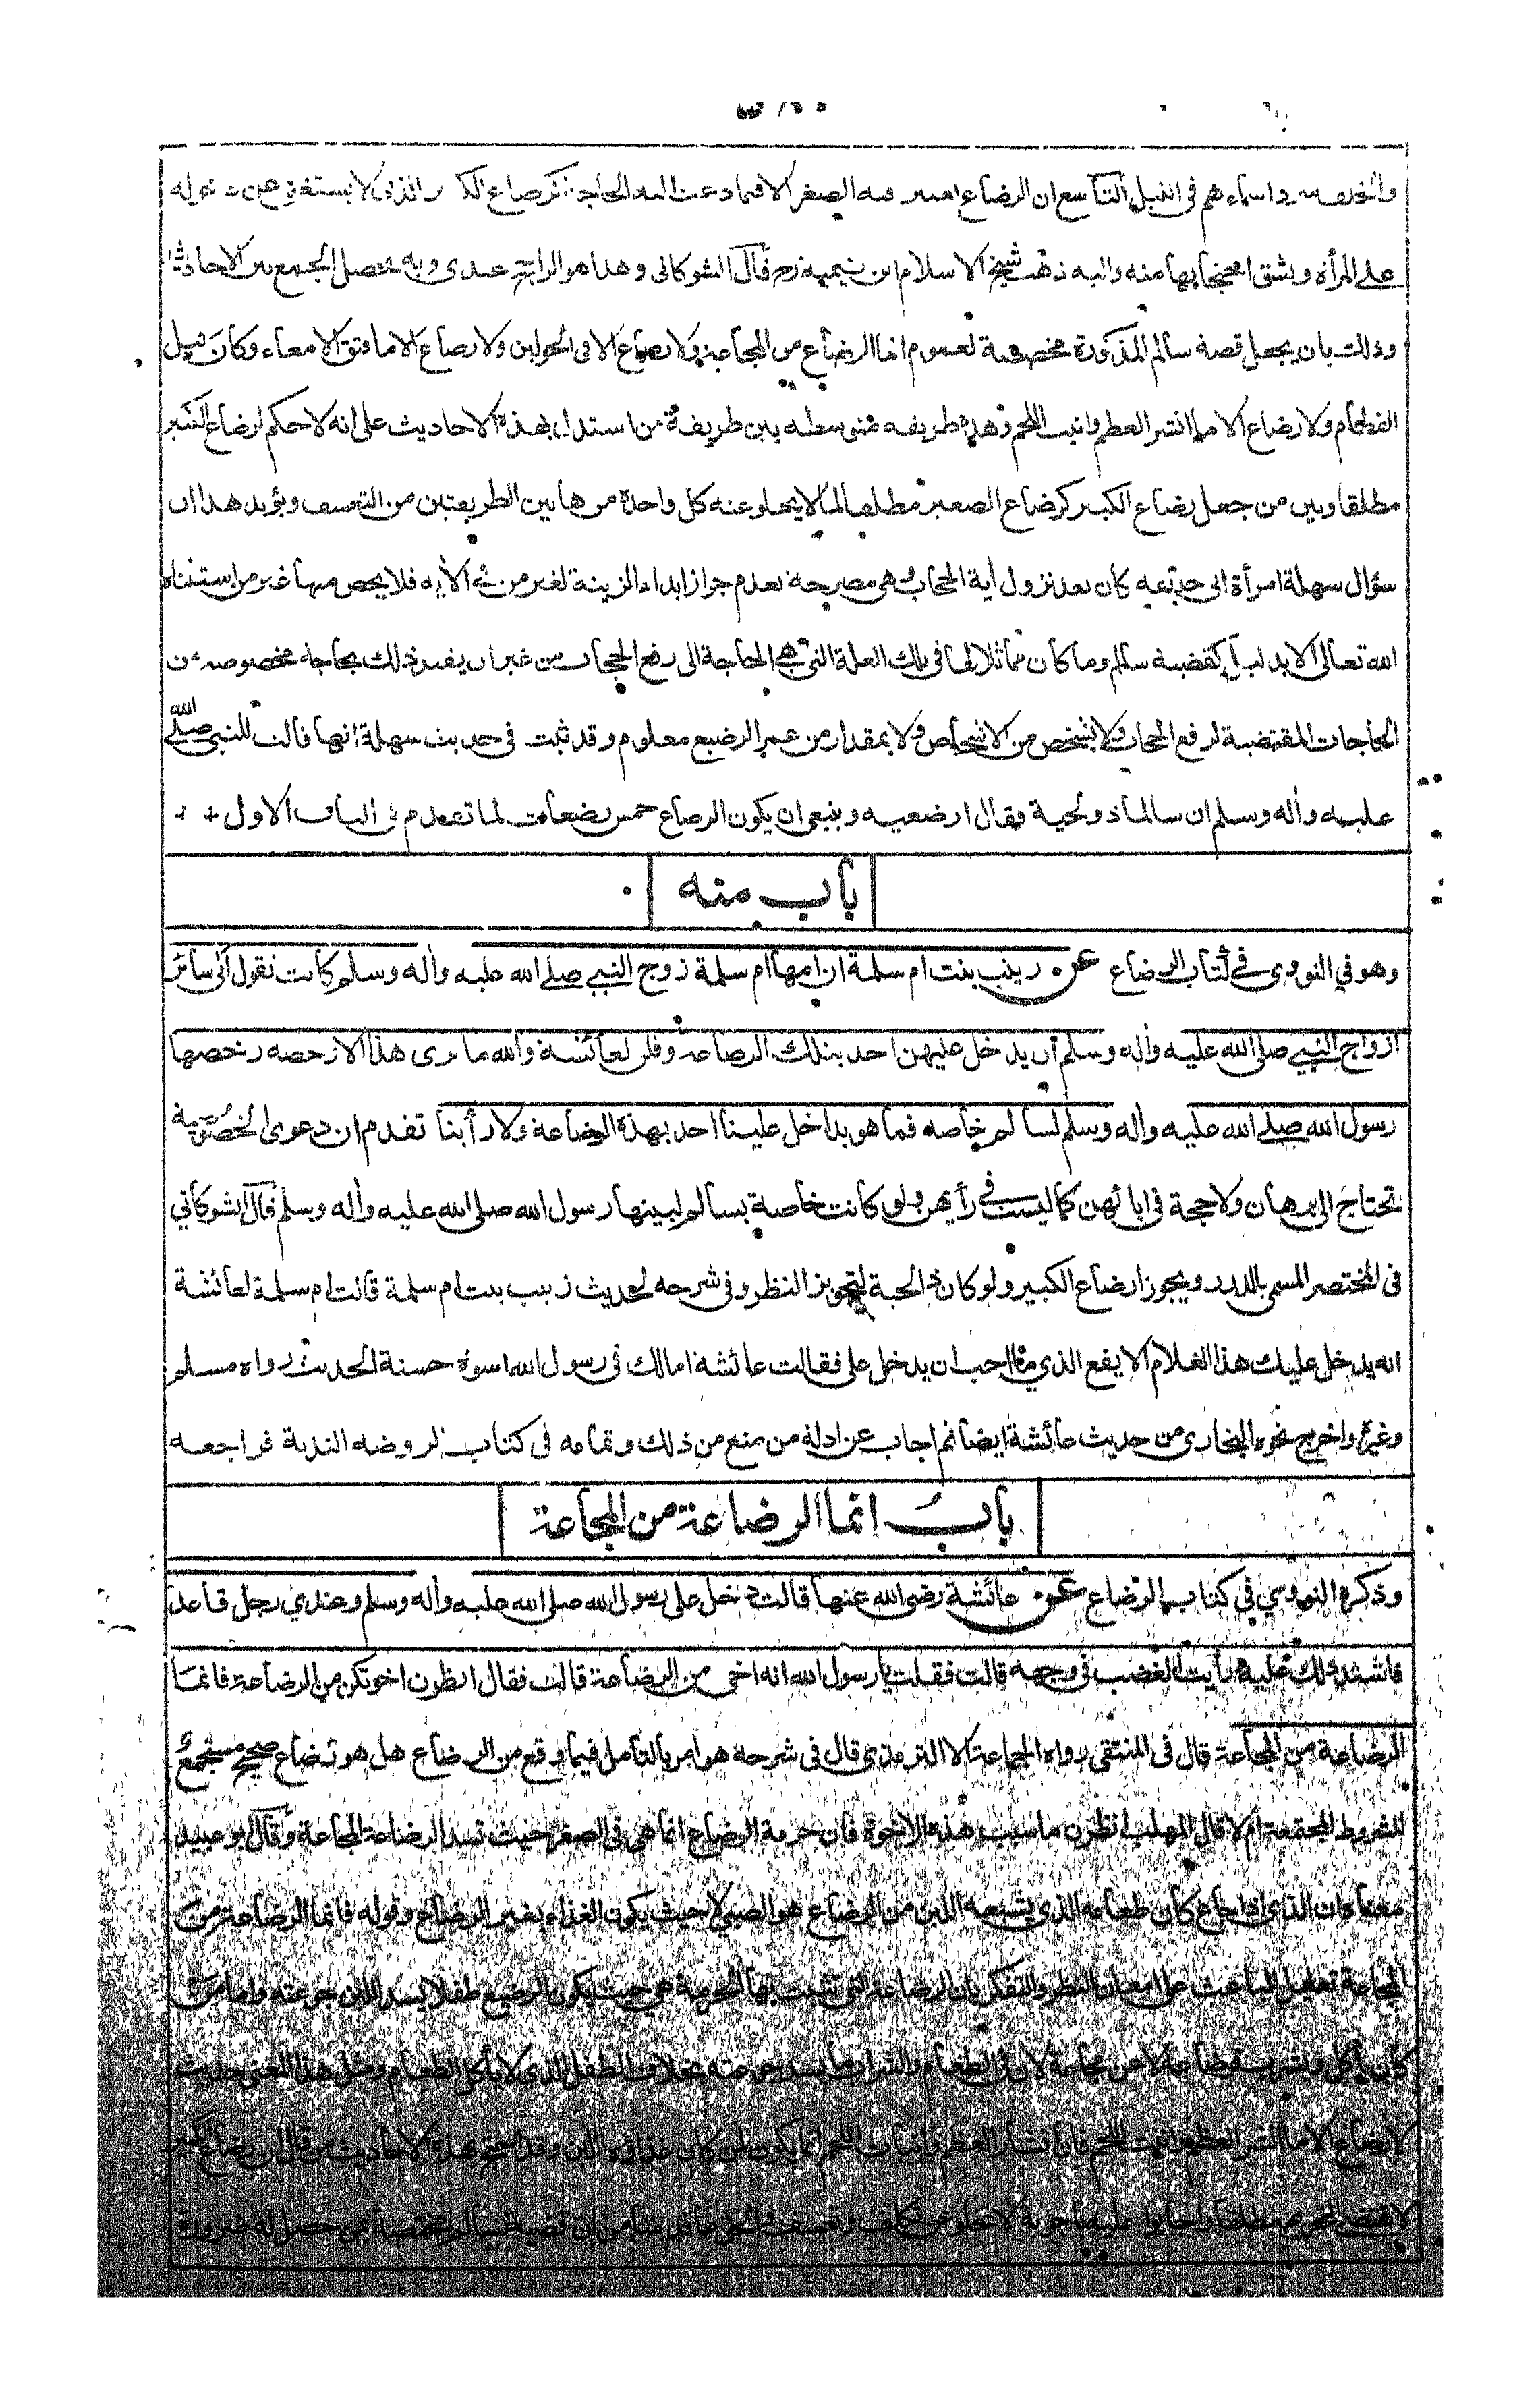 في النيل التاسع ان الرضاع يعتبر فيه الصغر الا فيما دعت اليه الحاجة كرضاع الكبير الذي لا يستغنى عن دخوله
على المرأة ويشق احتجابها منه واليه ذهب شيخ الاسلام ابن تيمية رح قال الشوكاني وهذا هو الراجح عندي وبه يحصل الجمع بين الاحاديث
وذلك بان يجعل قصة سالم المذكورة مخصصة لعموم انما الرضاع من المجاعة ولا رضاع الا في الحولين ولا رضاع الا ما فتق الامعاء وكان قبل
الفطام ولا رضاع الا ما انشر العظم وانبت اللحم وهذه طريقة متوسطة بين طريقة من استدل بهذه الاحاديث على انه لا حكم لرضاع الكبير
مطلقا وبين من جعل رضاع الكبير كرضاع الصغير مطلقا لما لا يخلو عنه كل واحدة من هاتين الطريقتين من التعسف ويؤيد هذا ان
سؤال سهلة امرأة ابي حذيفة كان بعد نزول أية الحجاب وهي مصرحة بعدم جواز ابداء الزينة لغير من في الأية فلا يخص منها غير من استثناه
الله تعالى الا بدليل كقضية سالم وما كان مماثلا لها في تلك العلة التي هي الحاجة الى رفع الحجاب من غير ان يقيد ذلك بحاجة مخصوصة من
الحاجات المقتضية لرفع الحجاب ولا بشخص من الاشخاص ولا بمقدار من عمر الرضيع معلوم وقد ثبت في حديث سهلة انها قالت للنبي صلى الله
عليه وأله وسلم ان سالما ذو لحية فقال ارضعيه وينبغي ان يكون الرضاع خمس رضعات لما تقدم في الباب الاول
باب منه
وهو في النووي في كتاب الرضاع عن زينب بنت ام سلمة ان امها ام سلمة زوج النبي صلى الله عليه وأله وسلم كانت تقول ابى سائر
ازواج النبي صلى الله عليه وأله وسلم ان يدخل عليهن احد بتلك الرضاعة وقلن لعائشة والله ما نرى هذا الا رخصة رخصها
رسول الله صلى الله عليه وأله وسلم لسالم خاصة فما هو بداخل علينا احد بهذه الرضاعة ولا رأينا تقدم ان دعوى الخصوصية
تحتاج الى برهان ولا حجة في ابائهن كما ليست في رأيهن ولو كانت خاصة بسالم لبينها رسول الله صلى الله عليه وأله وسلم قال الشوكاني
في المختصر المسمى بالدرر ويجوز ارضاع الكبير ولو كان ذا لحية لتجويز النظر وفي شرحه لحديث زينب بنت ام سلمة قالت ام سلمة لعائشة
انه يدخل عليك هذا الغلام الايفع الذي ما احب ان يدخل علي فقالت عائشة امالك في رسول الله اسوة حسنة الحديث رواه مسلم
وغيره واخرج نحوه البخاري من حديث عائشة ايضا ثم اجاب عن ادلة من منع من ذلك وتمامه في كتاب الروضة الندية فراجعه
باب انما الرضاعة من المجاعة
وذكره النووي في كتاب الرضاع عن عائشة رضي الله عنها قالت دخل علي رسول الله صلى الله عليه وأله وسلم وعندي رجل قاعد
فاشتد ذلك عليه ورأيت الغضب في وجهه قالت فقلت يا رسول الله انه اخي من الرضاعة قالت فقال انظرن اخوتكن من الرضاعة فانما
الرضاعة من المجاعة قال في المنتقى رواه الجماعة الا الترمذي قال في شرحه هو امر بالتأمل فيما وقع من الرضاع هل هو رضاع صحيح مستجمع
للشروط المجتمعة ام لا قال المهلب انظرن ما سبب هذه الاخوة فان حرمة الرضاع انما هي في الصغر حيث تسد الرضاعة المجاعة وقال ابو عبيد
معناه ان الذي اذا جاع كان طعامه الذي يشبعه اللبن من الرضاع هو الصبي لا حيث يكون الغذاء بغير الرضاع وقوله فانما الرضاعة من
المجاعة تعليل للباعث على امعان النظر والتفكر بان الرضاعة التي تثبت بها الحرمة هي حيث يكون الرضيع طفلا يسد اللبن جوعته واما من
كان يأكل ويشرب فرضاعه لا عن مجاعة لان في الطعام والشراب ما يسد جوعته بخلاف الطفل الذي لا يأكل الطعام ومثل هذا المعنى حديث
لا رضاع الا ما انشر العظم وانبت اللحم فان انشار العظم وانبات اللحم انما يكون لمن كان غذاؤه اللبن وقد احتج بهذه الاحاديث من قال ان رضاع الكبير
لا يقتضي التحريم مطلقا واجابوا عن تكلف وتعسف والحق ما قدمنا من ان قضية سالم مختصة بمن حصل له ضرورة